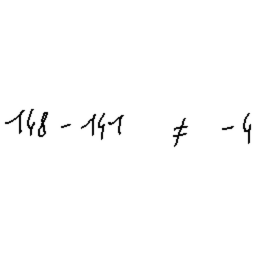 148 - 141 ≠ -4